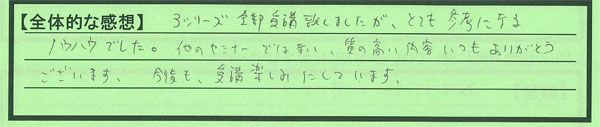 【全体的な感想】 3シリーズ 全部受講致しましたが、とても参考になる
ノウハウでした。他のセミナーではない、質の高い内容いつもありがとう
ございます、 今後も、受講楽しみにしています、